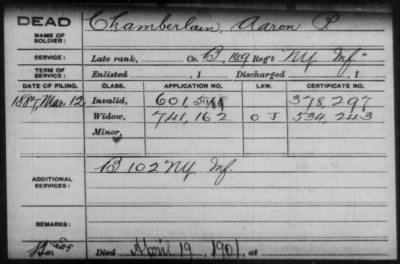 DEAD Chamberlain, Aaron P.
NAME OF SOLDIER:
SERVICE: Late rank, Co. B, 149 Reg't NY Inf.
TERM OF SERVICE: Enlisted , 1 Discharged , 1
DATE OF FILING. CLASS. APPLICATION NO. LAW. CERTIFICATE NO.
1887, Mar. 12 Invalid, 601, 378,297
Widow, 741,162 O J 534,243
Minor,
ADDITIONAL SERVICES: B 102 NY Inf.
REMARKS:
Died April 19, 1901, at